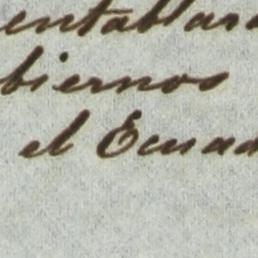 entablar
biernos
el Ecuad